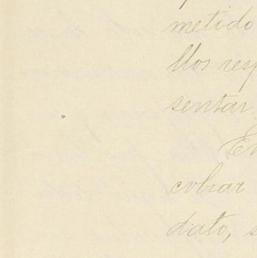 metido
llos resp
sentar,
En
cobrar
diato, s